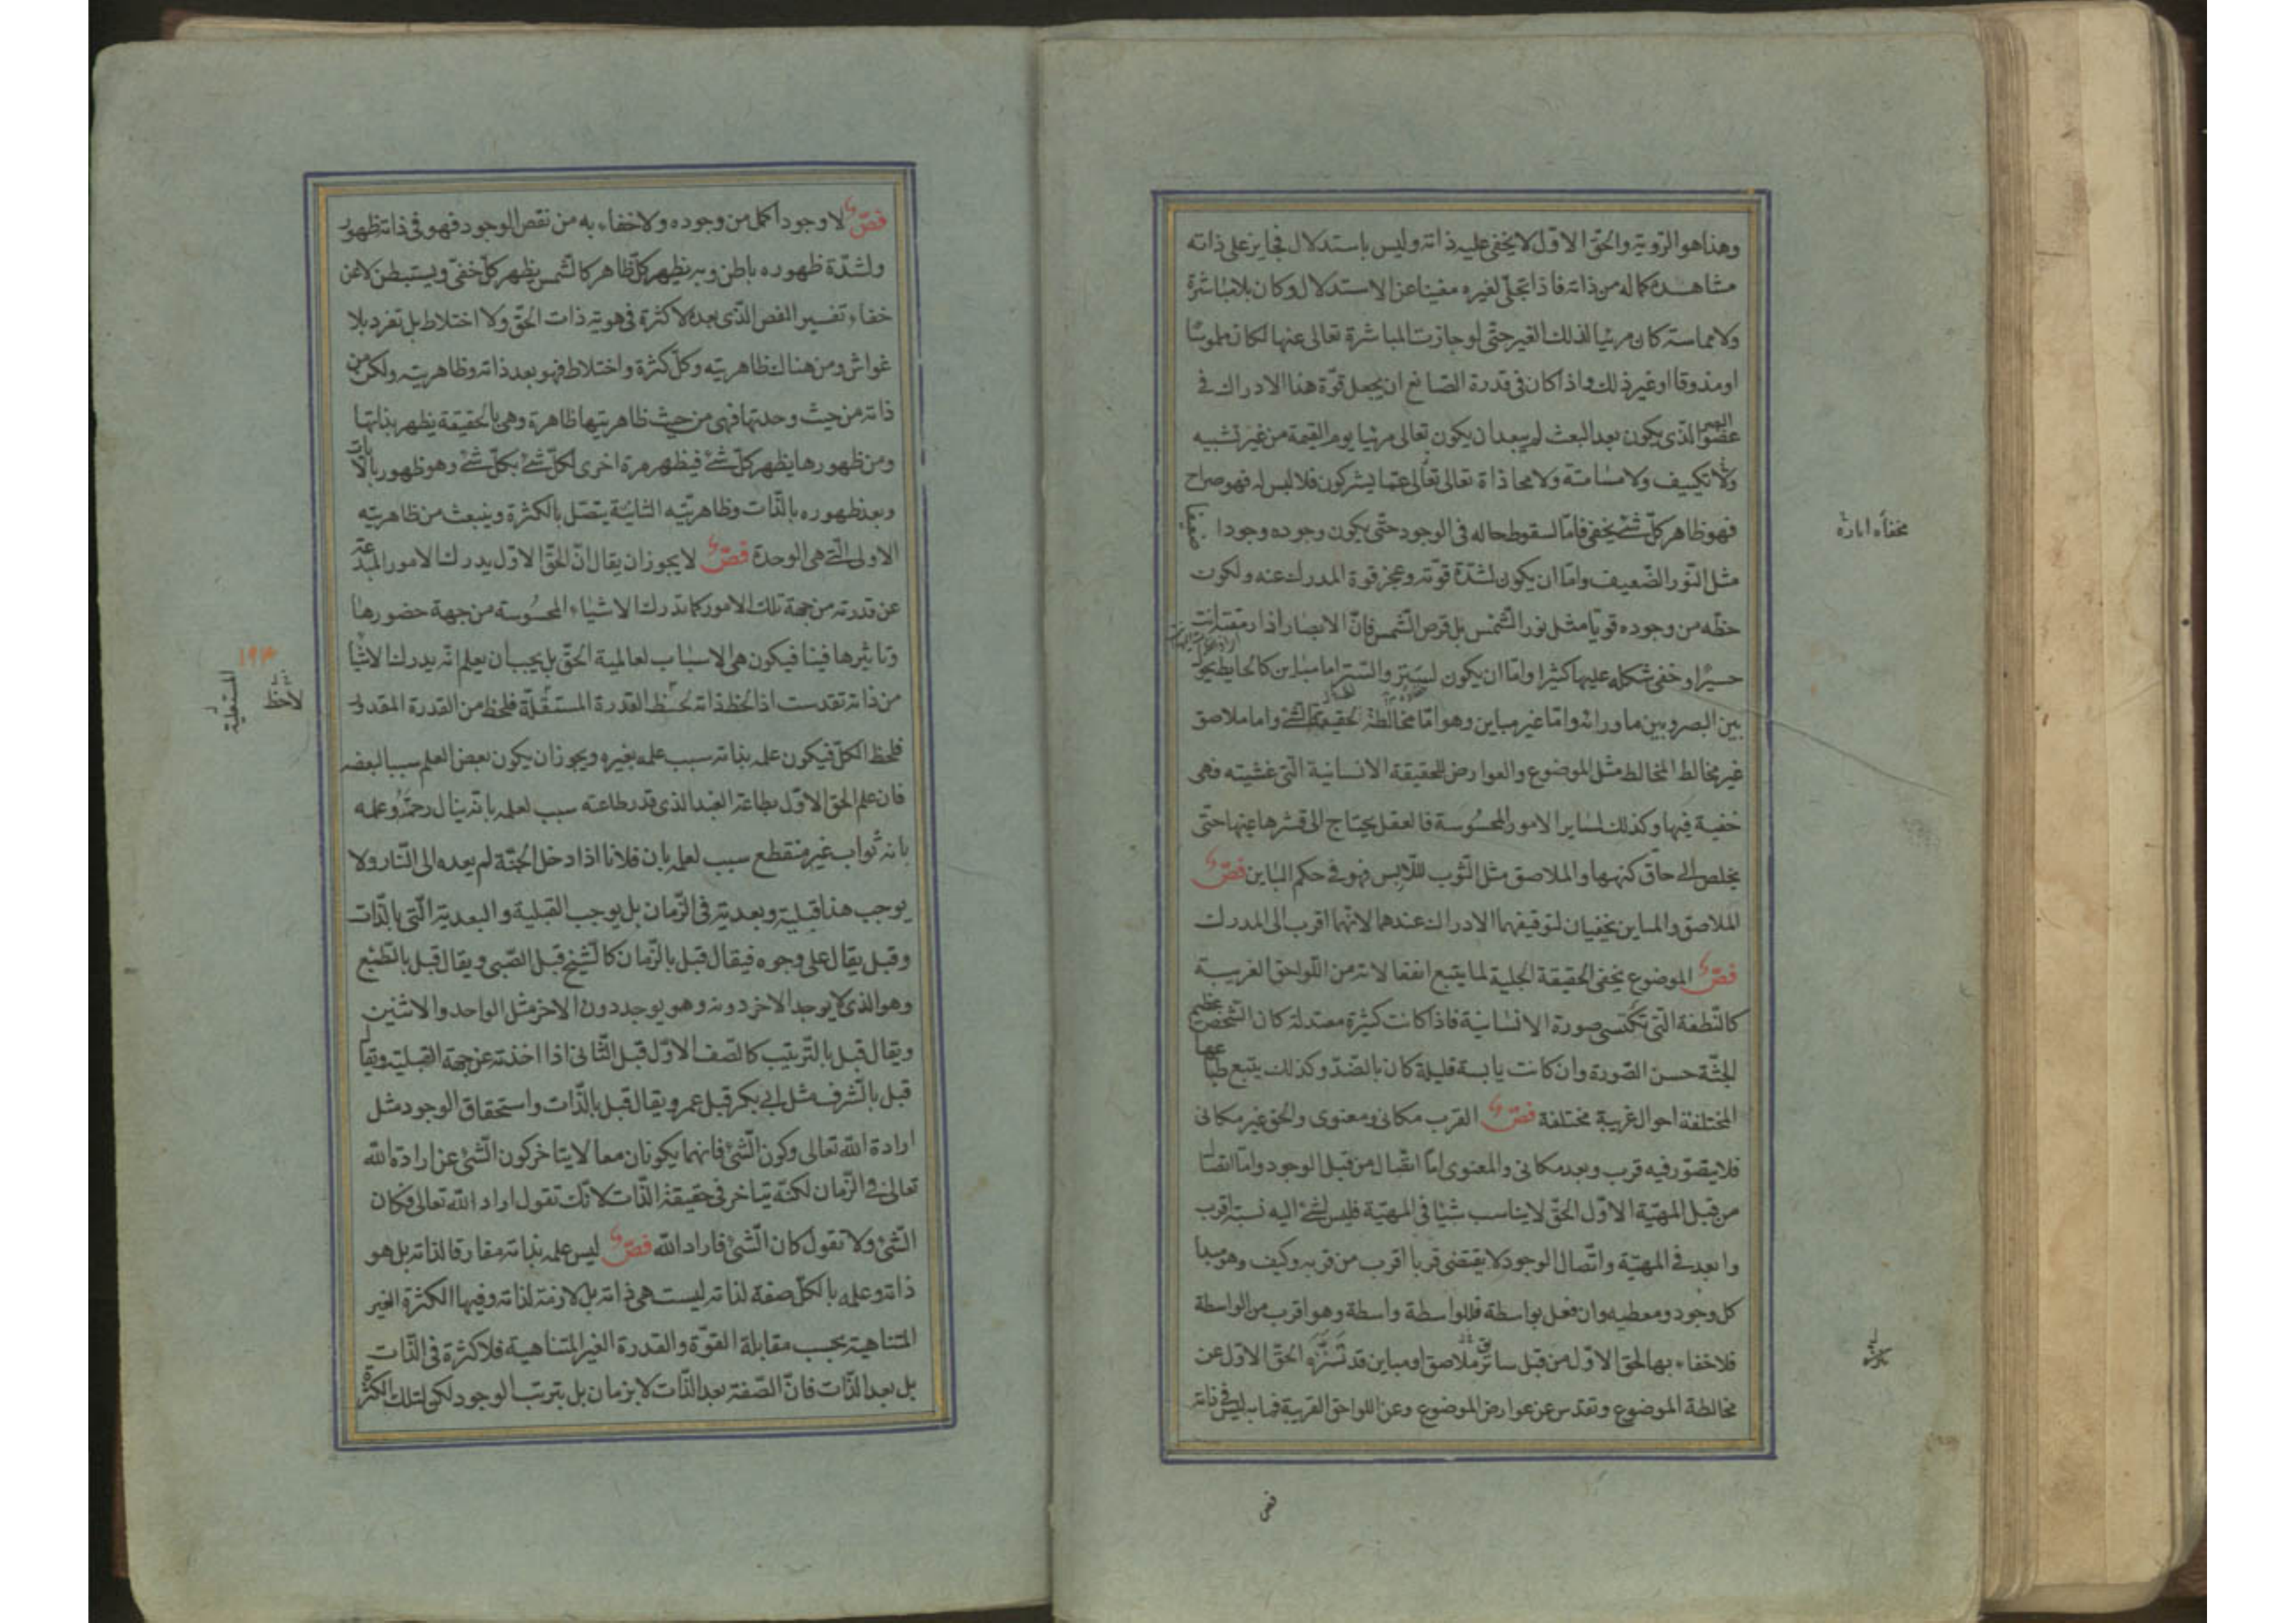 وهذا هو الرؤية والحق الاول لا يخفى عليه ذاته وليس باستدلال فجايز على ذاته
مشاهدة كماله من ذاته فاذا تجلى لغيره مغنيا عن الاستدلال وكان بلا مباشرة
ولا مماسة كان مرئيا لذلك الغير حتى لو جازت المباشرة تعالى عنها لكان ملموسا
او مذوقا او غير ذلك واذا كان فى قدرة الصانع ان يجعل قوة هذا الادراك فى
عضو البصر الذى يكون بعد البعث لم يبعد ان يكون تعالى مرئيا يوم القيمة من غير تشبيه
ولا تكييف ولا مسامتة ولا محاذاة تعالى تعالى عما يشركون فلا لبس له فهو صراح
فهو ظاهر كل شئ يخفى فاما لسقوط حاله فى الوجود حتى يكون وجوده وجودا ضعيفا
مثل النور الضعيف واما ان يكون لشدة قوته وعجز قوة المدرك عنه ويكون
حظه من وجوده قويا مثل نور الشمس بل قرص الشمس فان الابصار اذا رمقته ارتدت
حسيرا وخفى شكله عليها كثيرا واما ان يكون لستر والستر اما مباين كالحايط يحول
بين البصر وبين ما ورائه واما غير مباين وهو اما مخالطة لحقيقة الشئ واما ملاصق
غير مخالط المخالط مثل الموضوع والعوارض للحقيقة الانسانية التى غشيته فهى
خفية فيها وكذلك لساير الامور المحسوسة فالعقل يحتاج الى قشرها عنها حتى
يخلص الى حاق كنهها والملاصق مثل الثوب للابس فهو فى حكم المباين فص
الملاصق والمباين يخفيان لتوقيفهما الادراك عندهما لانهما اقرب الى المدرك
فص الموضوع يخفى الحقيقة الجلية لما يتبع انفعالاته من اللواحق الغريبة
كالنطفة التى تكتسى صورة الانسانية فاذا كانت كثيرة معتدلة كان الشخص عظيم
الجثة حسن الصورة وان كانت يابسة قليلة كان بالضد وكذلك يتبع طباعها
المختلفة احوال غريبة مختلفة فص القرب مكانى ومعنوى والحق غير مكانى
فلا يتصور فيه قرب وبعد مكانى والمعنوى اما اتصال من قبل الوجود واما اتصال
من قبل المهية الاول الحق لا يناسب شيئا فى المهية فليس لشئ اليه نسبة اقرب
وابعد فى المهية واتصال الوجود لا يقتضى قربا اقرب من قربه وكيف وهو مبدأ
كل وجود ومعطيه وان فعل بواسطة فللواسطة واسطة وهو اقرب من الواسطة
فلا خفاء بها لحق الاول من قبل ساتر ملاصق او مباين قد تنزه الحق الاول عن
مخالطة الموضوع وتقدس عن عوارض الموضوع وعن اللواحق الغريبة فما به لبس فى ذاته
فص
فص لا وجود اكمل من وجوده ولا خفاء به من نقص الوجود فهو فى ذاته ظهور
ولشدة ظهوره باطن وبه يظهر كل ظاهر كالشمس يظهر كل خفى ويستبطن لا عن
خفاء تفسير الفص الذى بعده لا كثرة فى هوية ذات الحق ولا اختلاط بل تفرد بلا
غواش ومن هناك ظاهريته وكل كثرة واختلاط فهو بعد ذاته وظاهريته ولكن من
ذاته من حيث وحدتها فهى من حيث ظاهريتها ظاهرة وهى بالحقيقة يظهر بذاتها
ومن ظهورها يظهر كل شئ فيظهر مرة اخرى لكل شئ بكل شئ وهو ظهور بالايات
وبعد ظهوره بالذات وظاهريته الثانية يتصل بالكثرة وينبعث من ظاهريته
الاولى التى هى الوحدة فص لا يجوز ان يقال ان الحق الاول يدرك الامور المبدعة
عن قدرته من جهة تلك الامور كما تدرك الاشياء المحسوسة من جهة حضورها
وتاثيرها فينا فيكون هى الاسباب لعالمية الحق بل يجب ان يعلم انه يدرك الاشيا
من ذاته تقدست اذا لحظ ذاته لحظ القدرة المستقلة فلحظ من القدرة المقدور
فلحظ الكل فيكون علمه بذاته سبب علمه بغيره ويجوز ان يكون بعض العلم سببا لبعضه
فان علم الحق الاول بطاعة العبد الذى قدر طاعته سبب لعلمه بانه ينال رحمته وعلمه
بانه ثواب غير منقطع سبب لعلمه بان فلانا اذا دخل الجنة لم يعده الى النار ولا
يوجب هذا قبلية وبعدية فى الزمان بل يوجب القبلية والبعدية التى بالذات
وقبل يقال على وجوه فيقال قبل بالزمان كالشيخ قبل الصبى ويقال قبل بالطبع
وهو الذى لا يوجد الاخر دونه وهو يوجد دون الاخر مثل الواحد والاثنين
ويقال قبل بالترتيب كالصف الاول قبل الثانى اذا اخذته عن جهة القبلية ويقال
قبل بالشرف مثل ابى بكر قبل عمر ويقال قبل بالذات واستحقاق الوجود مثل
ارادة الله تعالى وكون الشئ فانهما يكونان معا لا يتاخر كون الشئ عن ارادة الله
تعالى فى الزمان لكنه يتاخر فى حقيقة الذات لانك تقول اراد الله تعالى فكان
الشئ ولا تقول كان الشئ فاراد الله فص ليس علمه بذاته مفارقا لذاته بل هو
ذاته وعلمه بالكل صفة لذاته ليست هى ذاته بل لازمة لذاته وفيها الكثرة الغير
المتناهية بحسب مقابلة القوة والقدرة الغير المتناهية فلا كثرة فى الذات
بل بعد الذات فان الصفة بعد الذات لا بزمان بل بترتيب الوجود لكن لتلك الكثرة
لاحظ
المستعلية